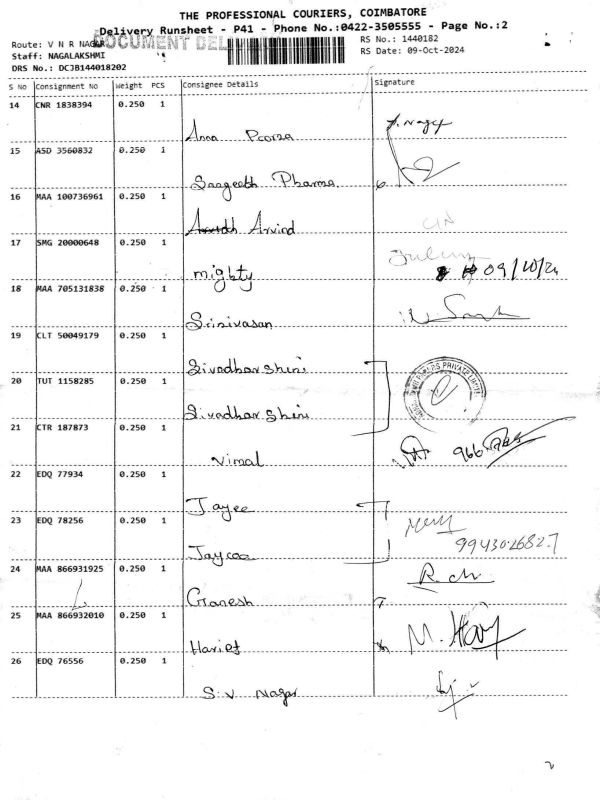 THE PROFESSIONAL COURIERS, COIMBATORE
Delivery Runsheet - P41 - Phone No.:0422-3505555 - Page No.:2
Route: V N R NAGAR
DOCUMENT DEL
RS No.: 1440182
Staff: NAGALAKSHMI
RS Date: 09-Oct-2024
DRS No.: DCJB144018202
S No Consignment No Weight PCS Consignee Details Signature
14 CNR 1838394 0.250 1
15 ASD 3560832 0.250 1
Sangeeth Pharma
16 MAA 100736961 0.250 1
Arvind
17 SMG 20000648 0.250 1
mighty
09/10/24
18 MAA 705131838 0.250 1
Srinivasan
19 CLT 50049179 0.250 1
Sivadharshini
PRIVATE LIMITED
20 TUT 1158285 0.250 1
Sivadharshini
21 CTR 187873 0.250 1
Vimal
22 EDQ 77934 0.250 1
Jaycee
23 EDQ 78256 0.250 1
Jaycee
9943026827
24 MAA 866931925 0.250 1
Ganesh
25 MAA 866932010 0.250 1
M. Hari
26 EDQ 76556 0.250 1
S.V Nagar
2